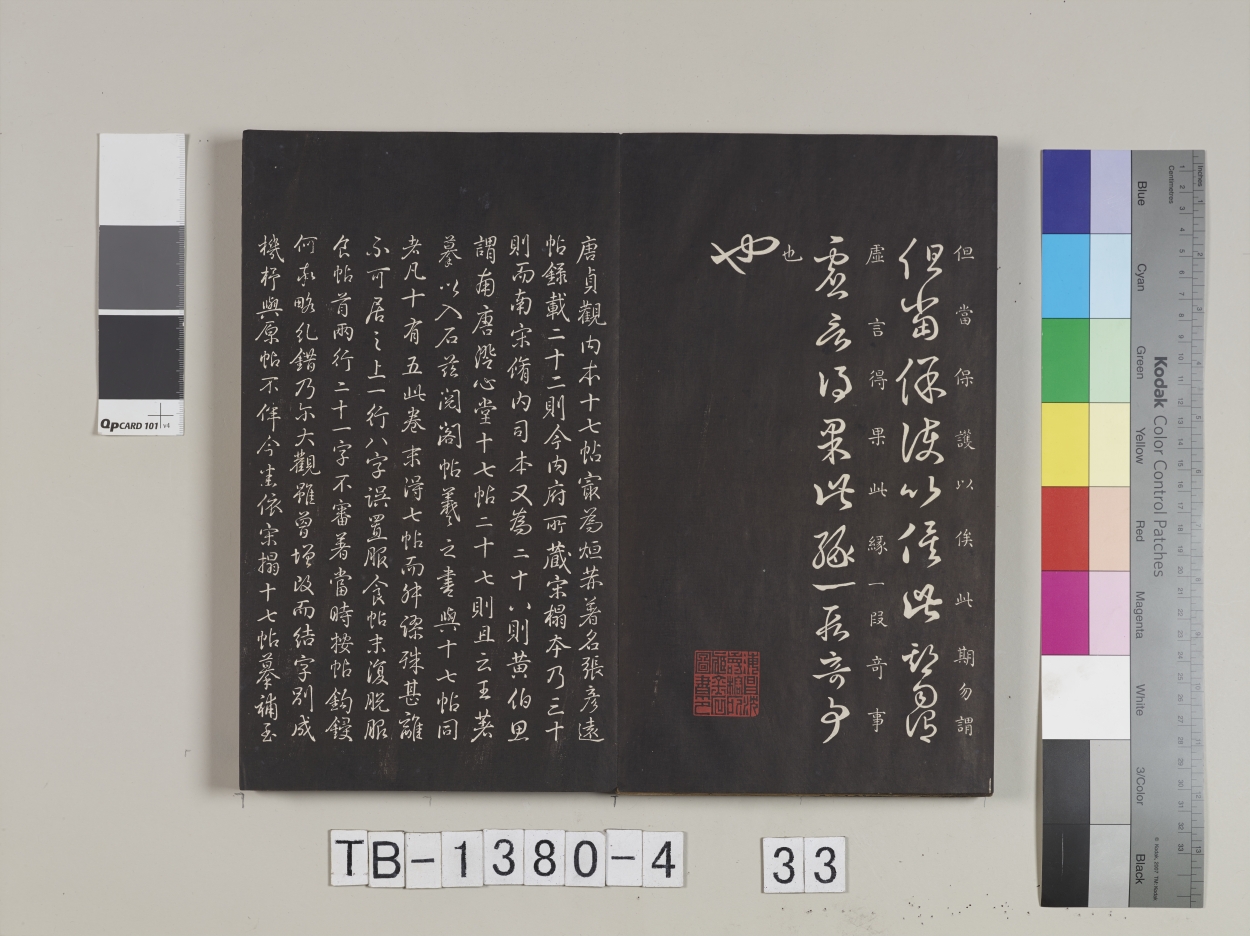 但當保護以俟此期勿謂
但當保護以俟此期勿謂
虛言得果此緣一段奇事
虛言得果此緣一段奇事
也
也
唐貞觀內本十七帖寂為烜赫著名張彥遠
帖錄載二十二則今內府所藏宋搨本乃三十
則而南宋脩內司本又為二十八則黃伯思
謂南唐澄心堂十七帖二十七則且云王著
摹以入石茲閱閣帖羲之書與十七帖同
者凡十有五此卷末得七帖而舛謬殊甚離
不可居之上一行八字誤置服食帖末復脫服
食帖首兩行二十一字不審著當時按帖鉤鋟
何亦略紕錯乃爾大觀雖曾增改而結字別成
機杼與原帖不侔今悉依宋搨十七帖摹補至
QPCARD 101 v4
Kodak Color Control Patches
Blue
Cyan
Green
Yellow
Red
Magenta
White
3/Color
Black
Inches
Centimetres
© Kodak, 2007 TM Kodak
TB-1380-4
33